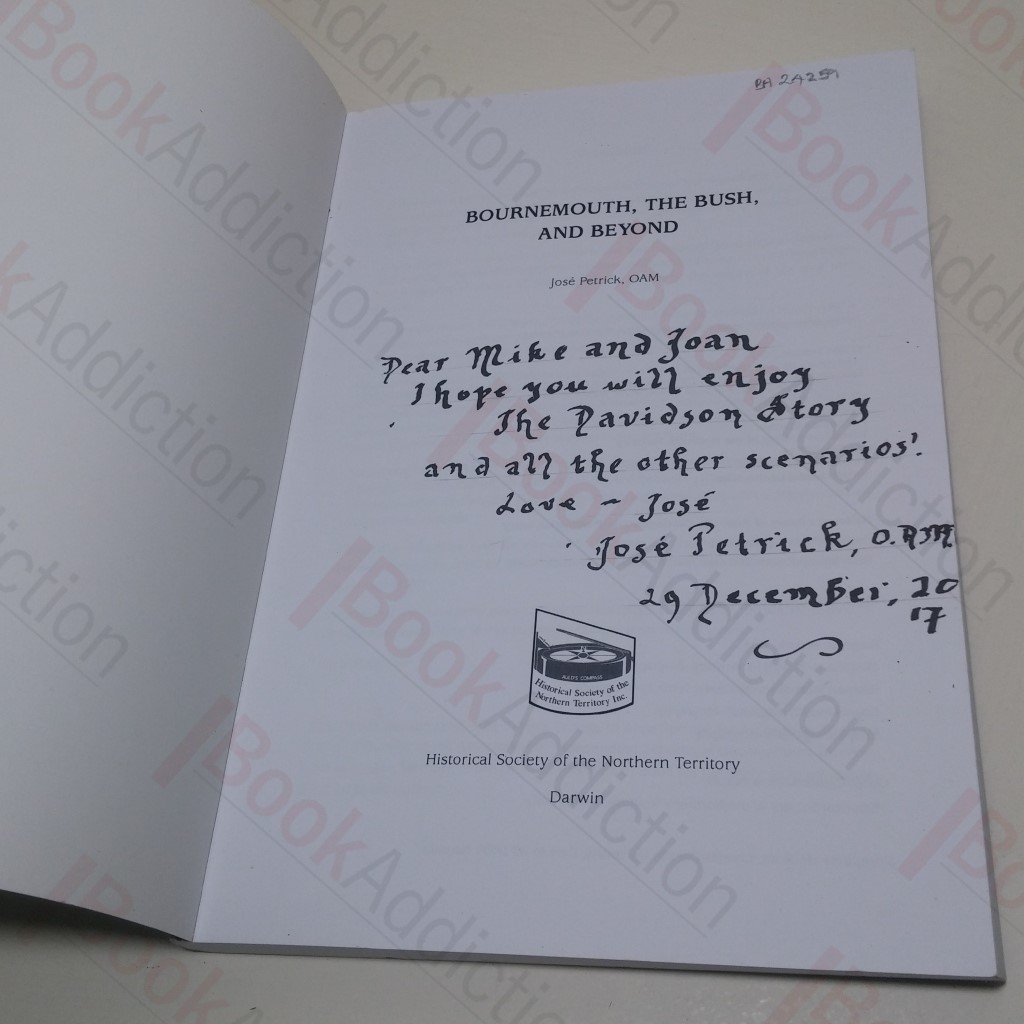 BA 24259
BOURNEMOUTH, THE BUSH,
AND BEYOND
José Petrick, OAM
Dear Mike and Joan
I hope you will enjoy
The Davidson Story
and all the other scenarios!
Love ~ José
José Petrick, O.A.M
29 December, 20
'17
AULD'S COMPASS
Historical Society of the
Northern Territory Inc.
Historical Society of the Northern Territory
Darwin
BookAddiction